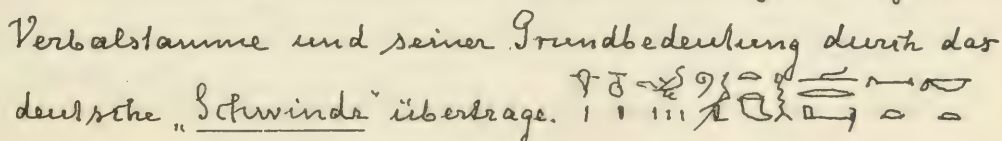 Verbalstamme und seiner Grundbedeutung durch das
deutsche „Schwinde“ übertrage.